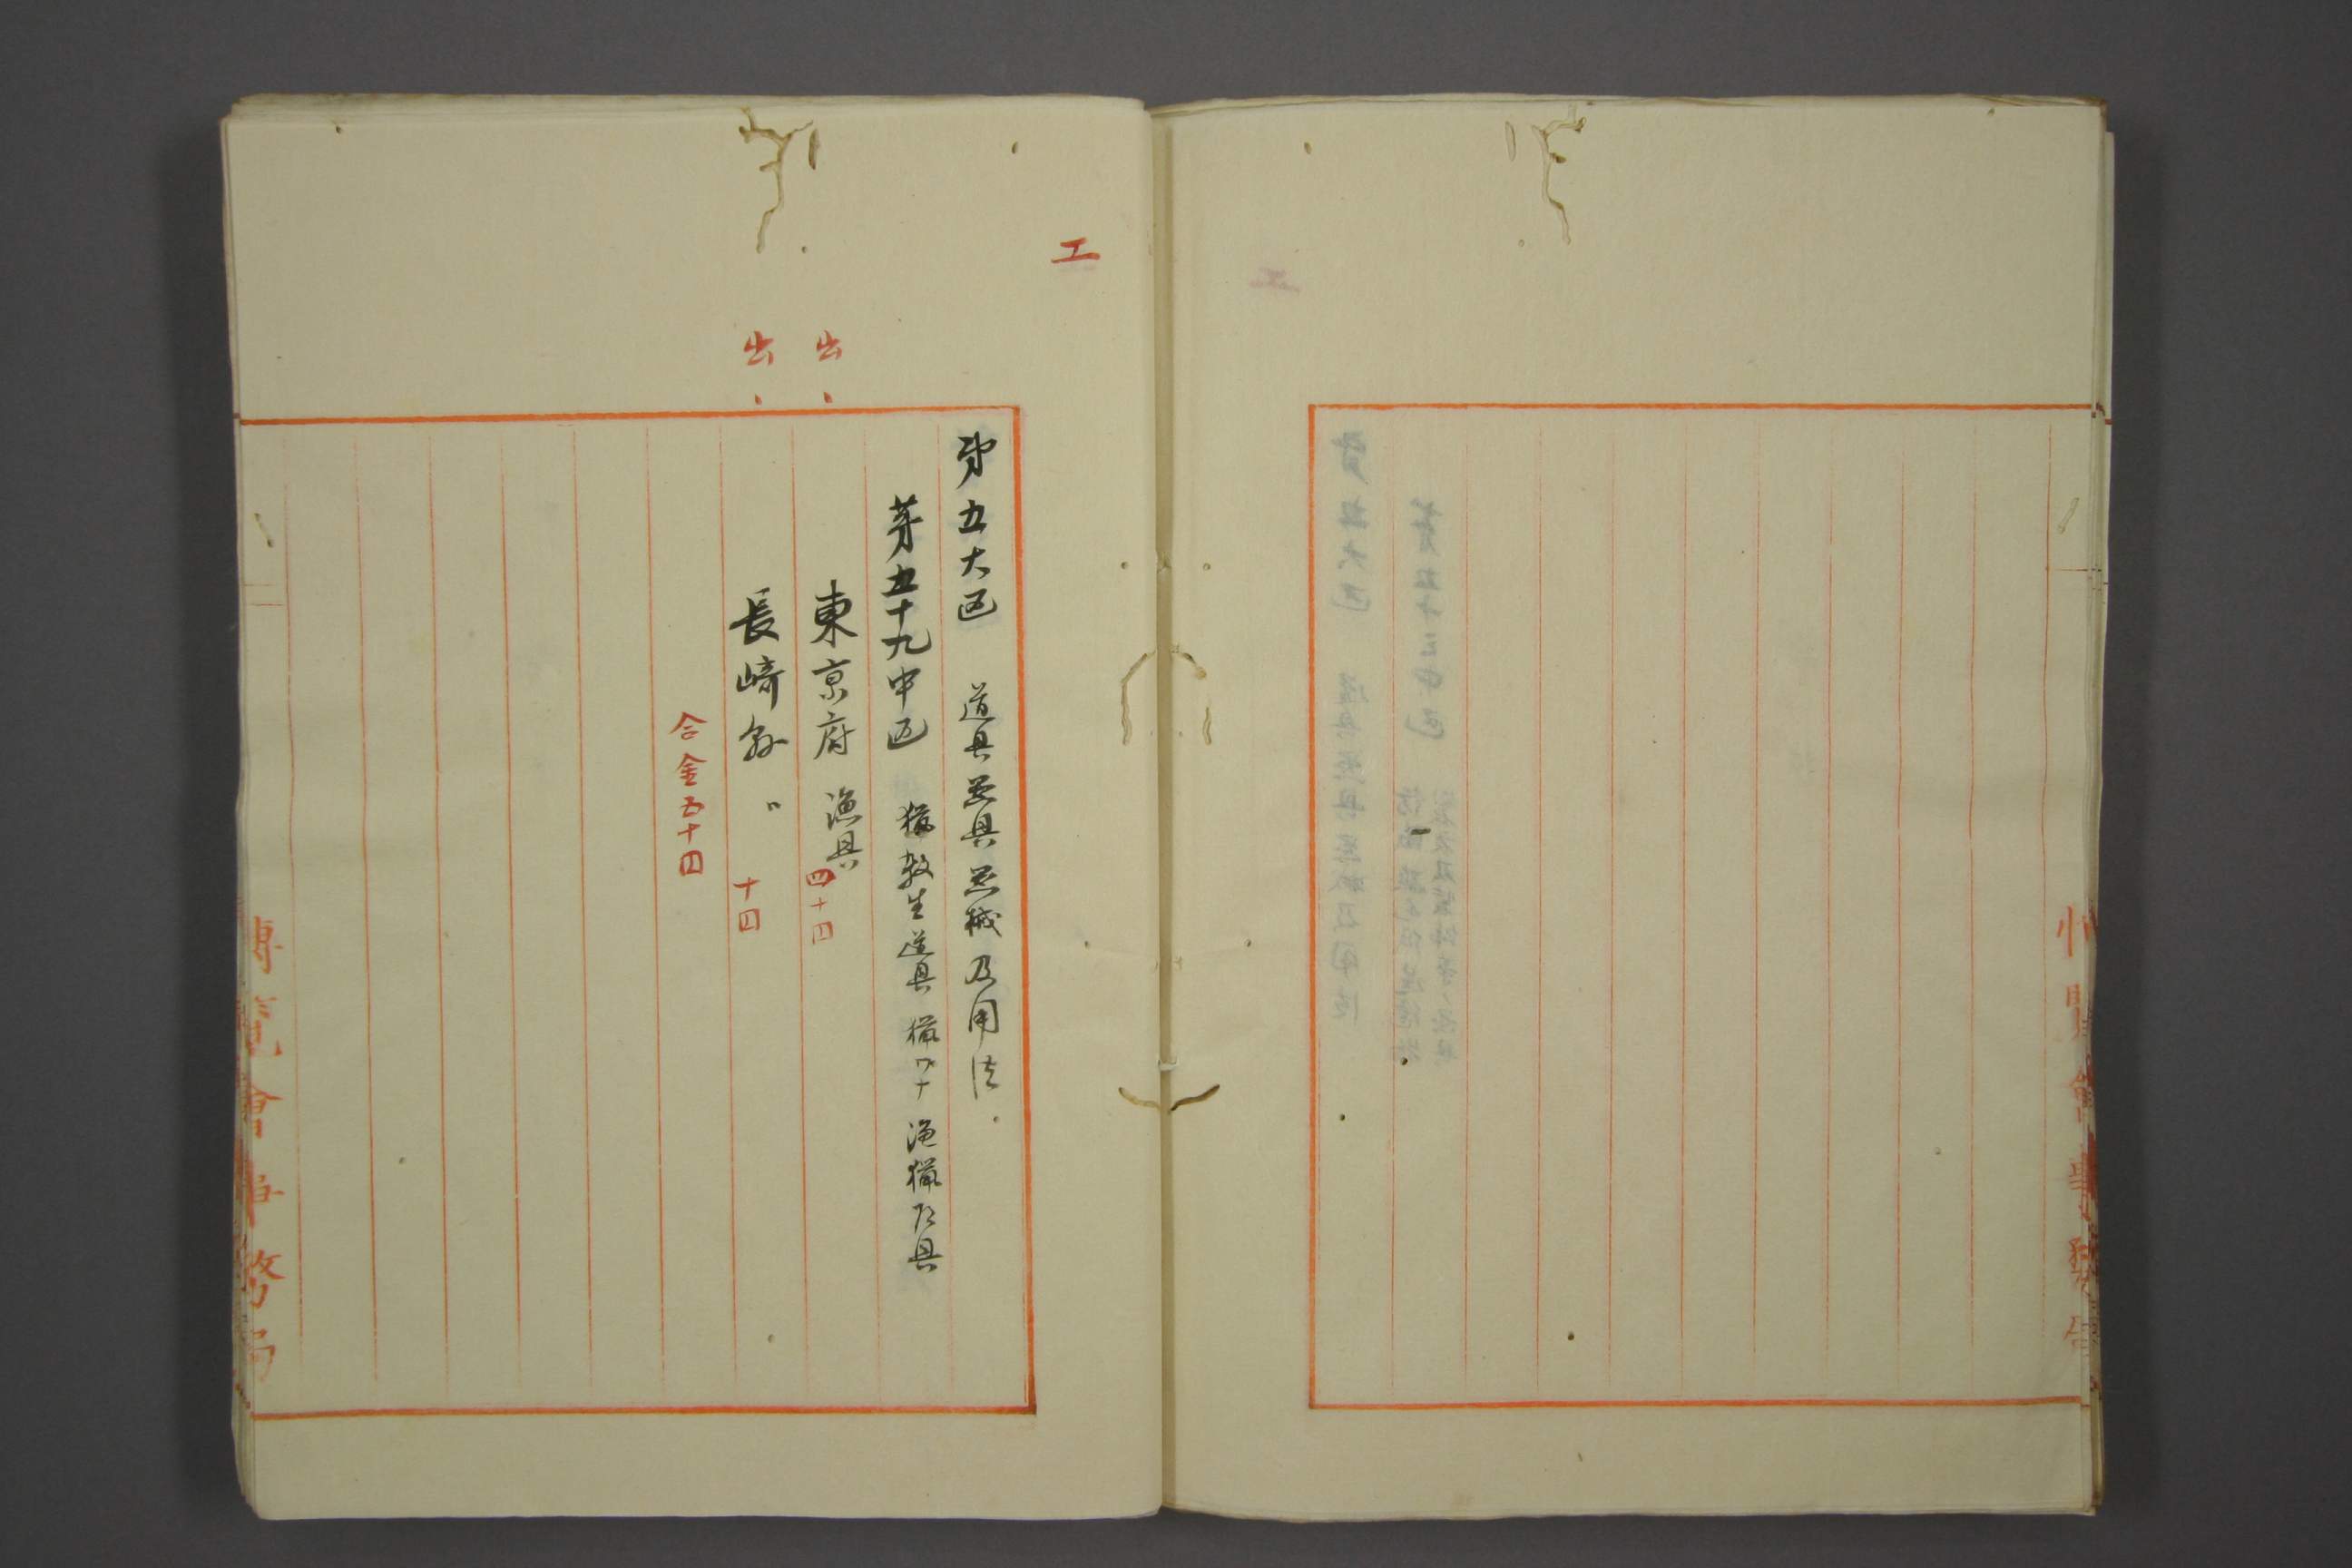 工
第五大区 道具器具器械及用法
第五十九中区 猟殺生道具 猟ワナ 漁猟ノ具
出、 東京府 漁具 四十円
出、 長崎県 〃 十円
合金五十円
博覧會事務局